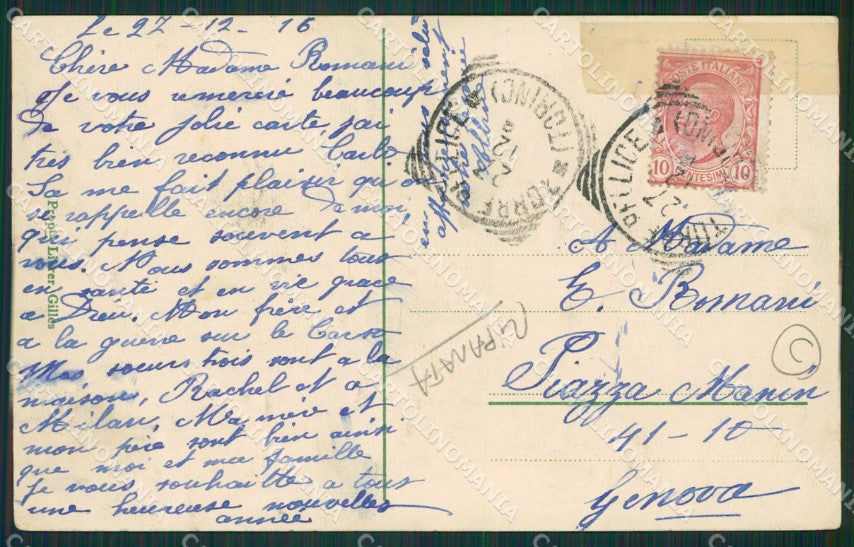 Le 27-12-16
Chère Madame Romani
Je vous remercie beaucoup
de votre jolie carte j'ai
très bien reconnu Carlo
Sa me fait plaisir qu'o
se rappelle encore de moi,
qui pense souvent a
vous. Nous sommes tous
en santé et en vie grace
a Dieu. Mon frère est
a la guerre sur le Carso
Mes soeurs trois sont a la
maison, Rachel est a
Milan, Ma mère et
mon père sont bien ainsi
que moi et ma famille
Je vous souhaitte a tous
une heureuse nouvelles
année
en vous
Propr. Librer. Gilles
RIPARATA
TORRE PELLICE (TORINO)
27 12
POSTE ITALIANE
10 CENTESIMI 10
TORRE PELLICE (TORINO)
27 12
A Madame
E. Romani
Piazza Manin
41-10
Genova
C
CARTOLINOMANIA